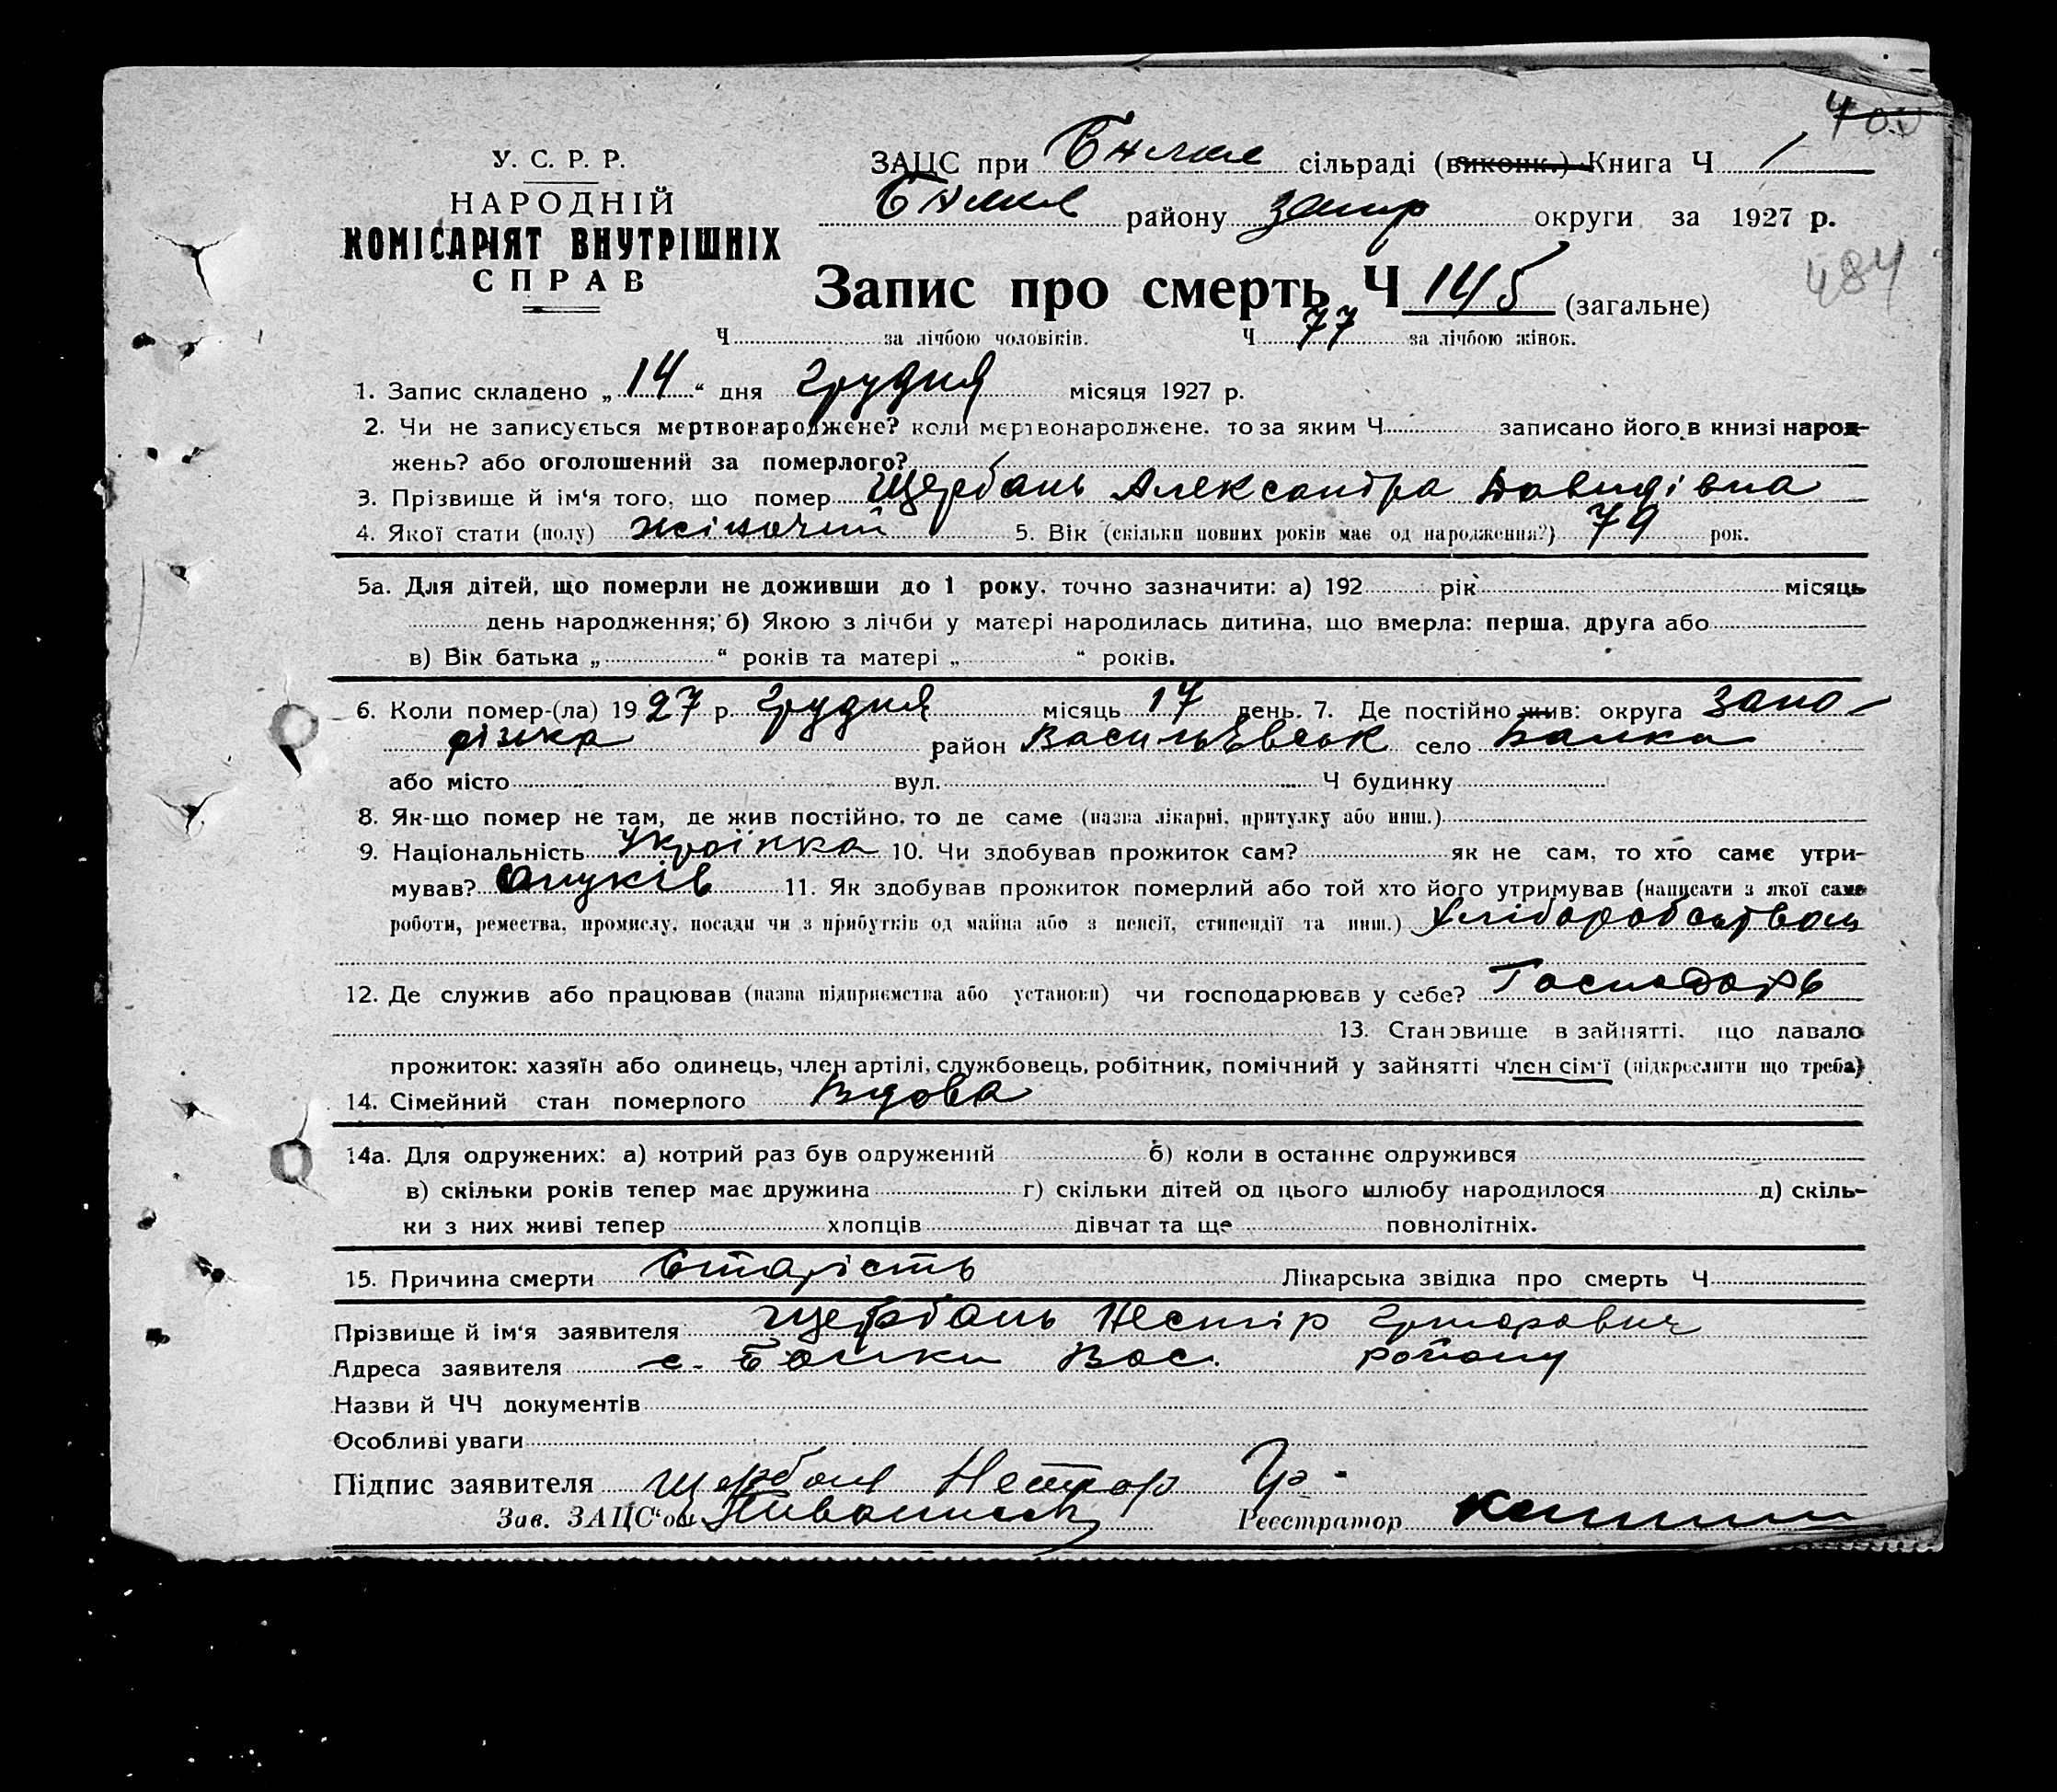 400
У. С. Р. Р.
НАРОДНІЙ
КОМІСАРІЯТ ВНУТРІШНІХ
СПРАВ
ЗАЦС при сільраді (виконк.) Книга Ч 1
району Запор округи за 1927 р.
484
Запис про смерть Ч 145 (загальне)
Ч за лічбою чоловіків. Ч 77 за лічбою жінок.
1. Запис складено „14“ дня Грудня місяця 1927 р.
2. Чи не записується мертвонароджене? коли мертвонароджене, то за яким Ч записано його в книзі народ-
жень? або оголошений за померлого?
3. Прізвище й ім‘я того, що помер Щербань Александра Давидівна
4. Якої стати (полу) жіночий 5. Вік (скільки повних років має од народження?) 79 рок.
5а. Для дітей, що померли не доживши до 1 року, точно зазначити: а) 192 рік місяць
день народження; б) Якою з лічби у матері народилась дитина, що вмерла: перша, друга або
в) Вік батька „ “ років та матері „ “ років.
6. Коли помер-(ла) 1927 р. Грудня місяць 17 день. 7. Де постійно жив: округа Запо-
різька район Васильєвськ село Балка
або місто вул. Ч будинку
8. Як-що помер не там, де жив постійно, то де саме (назва лікарні, притулку або инш.)
9. Національність Українка 10. Чи здобував прожиток сам? як не сам, то хто саме утри-
мував? Онуків 11. Як здобував прожиток померлий або той хто його утримував (написати з якої саме
роботи, ремества, промислу, посади чи з прибутків од майна або з пенсії, стипендії та инш.) Хліборобством
12. Де служив або працював (назва підприємства або установи) чи господарював у себе? Господарь
13. Становище в зайнятті, що давало
прожиток: хазяїн або одинець, член артілі, службовець, робітник, помічний у зайнятті член сім‘ї (підкреслити що треба)
14. Сімейний стан померлого Вдова
14а. Для одружених: а) котрий раз був одружений б) коли в останнє одружився
в) скільки років тепер має дружина г) скільки дітей од цього шлюбу народилося д) скіль-
ки з них живі тепер хлопців дівчат та ще повнолітніх.
15. Причина смерти Старість Лікарська звідка про смерть Ч
Прізвище й ім‘я заявителя Щербань Нестір Григорович
Адреса заявителя с. Балки Вас. району
Назви й ЧЧ документів
Особливі уваги
Підпис заявителя Щербань Нестор Гр.
Зав. ЗАЦС‘ом Реєстратор